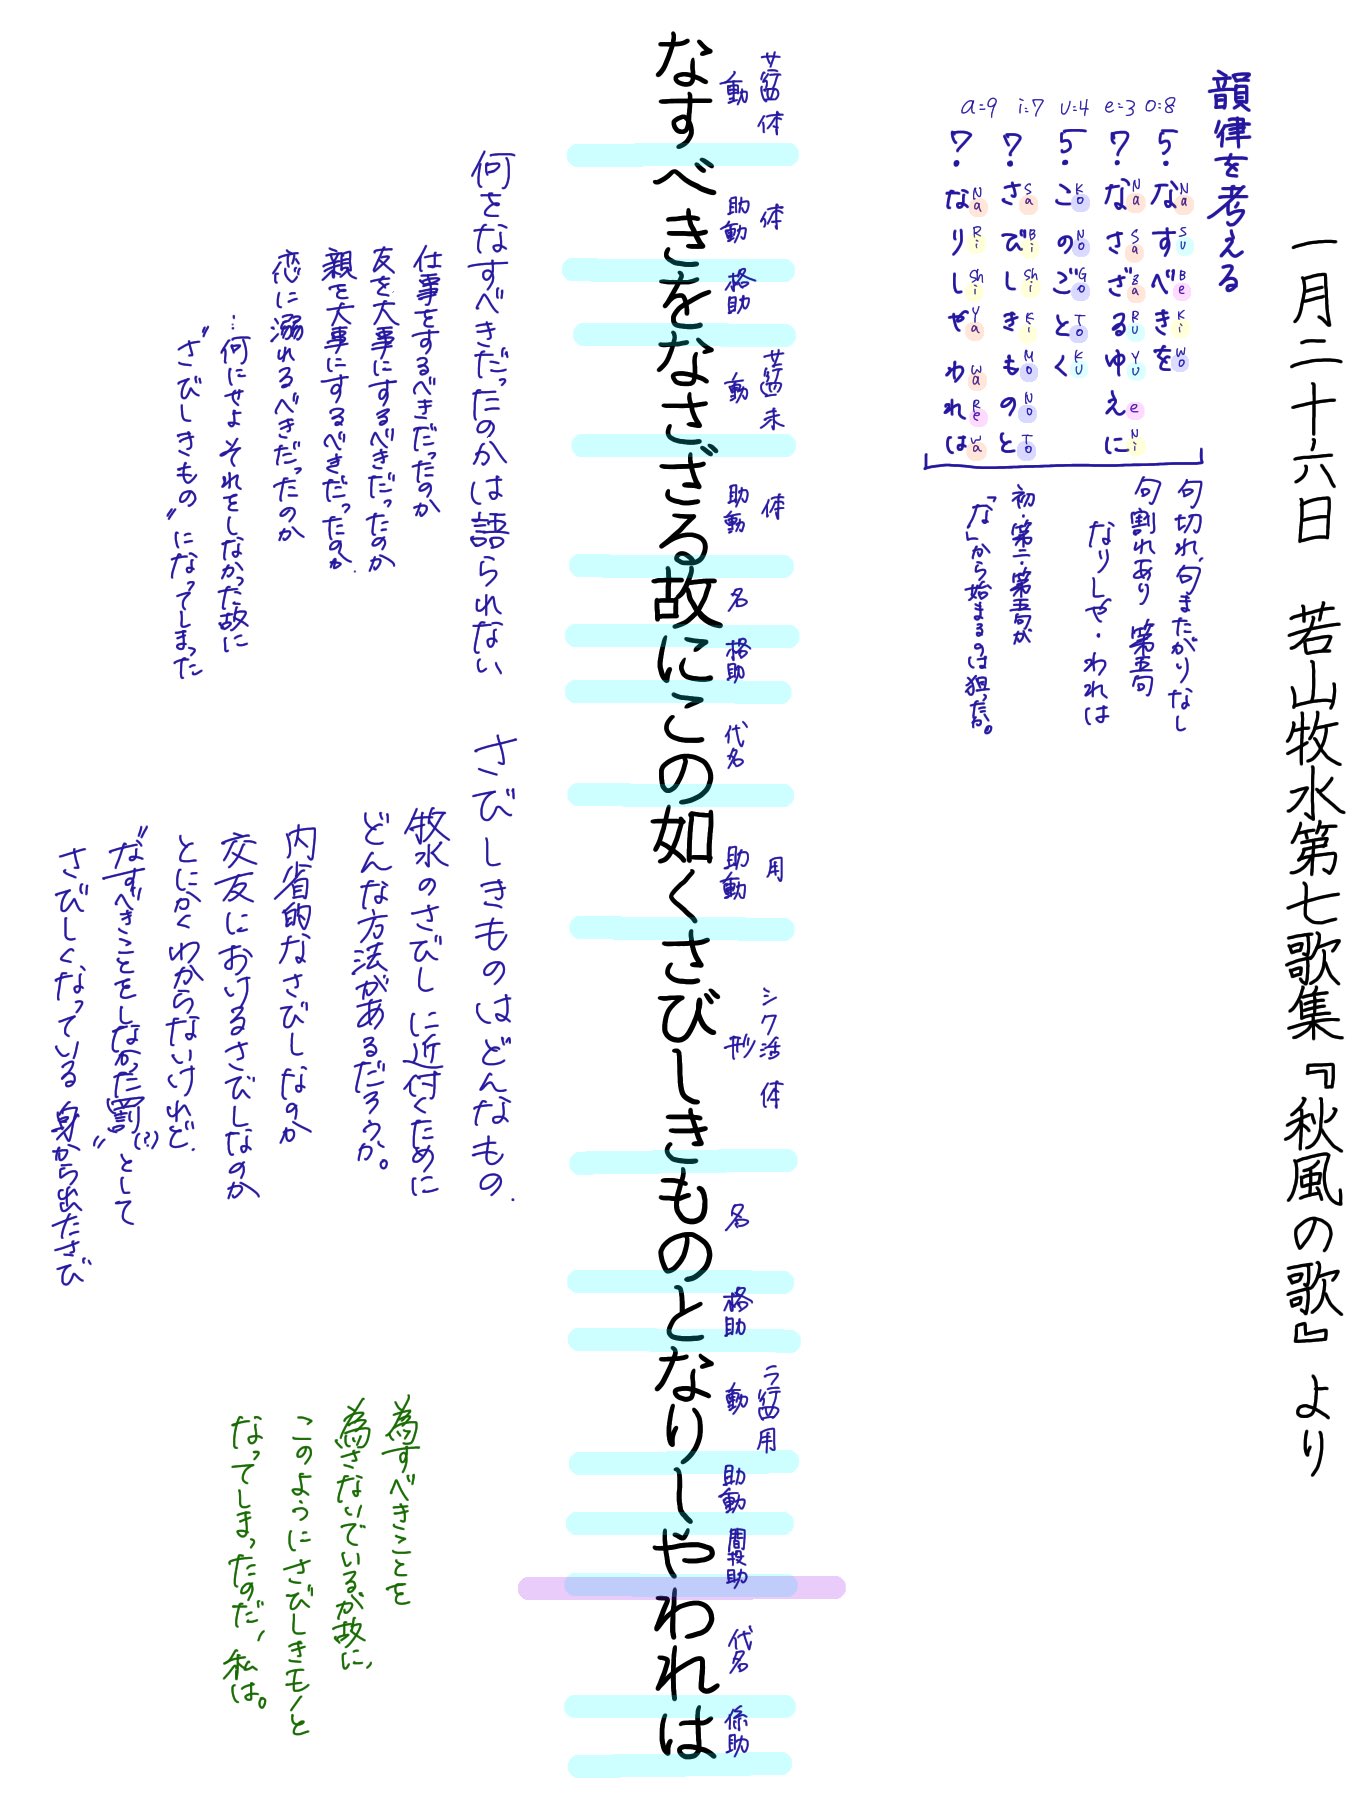 一月二十六日 若山牧水第七歌集『秋風の歌』より
韻律を考える
a=9 i=7 u=4 e=3 o:8
5.なすべきを
Na Su Be Ki Wo
7.なさざるゆえに
Na Sa Za Ru Yu e Ni
5.このごとく
Ko No Go To Ku
7.さびしきものと
Sa Bi Shi Ki Mo No To
7.なりしやわれは
Na Ri Shi Ya Wa Re Wa
句切れ、句またがりなし
句割れあり 第五句
なりしや・われは
初・第二・第五句が
「な」から始まるのは狙ったか。
なすべきをなさざる故にこの如くさびしきものとなりしやわれは
サ行四 体
動
体
助動
格助
サ行四 未
動
体
助動
名
格助
代名
用
助動
シク活 体
形
名
格助
ラ行四 用
動
助動
間投助
代名
係助
何をなすべきだったのかは語られない
仕事をするべきだったのか
友を大事にするべきだったのか
親を大事にするべきだったのか.
恋に溺れるべきだったのか
…何にせよ それをしなかった故に
"さびしきもの"になってしまった
さびしきものはどんなもの.
牧水のさびし に近付くために
どんな方法があるだろうか。
内省的なさびしなのか
交友におけるさびしなのか
とにかくわからないけれど.
"なすべきことをしなかった罰(?)"として
さびしくなっている 身から出たさび
為すべきことを
為さないでいるが故に、
このようにさびしきモノと
なってしまったのだ、私は。